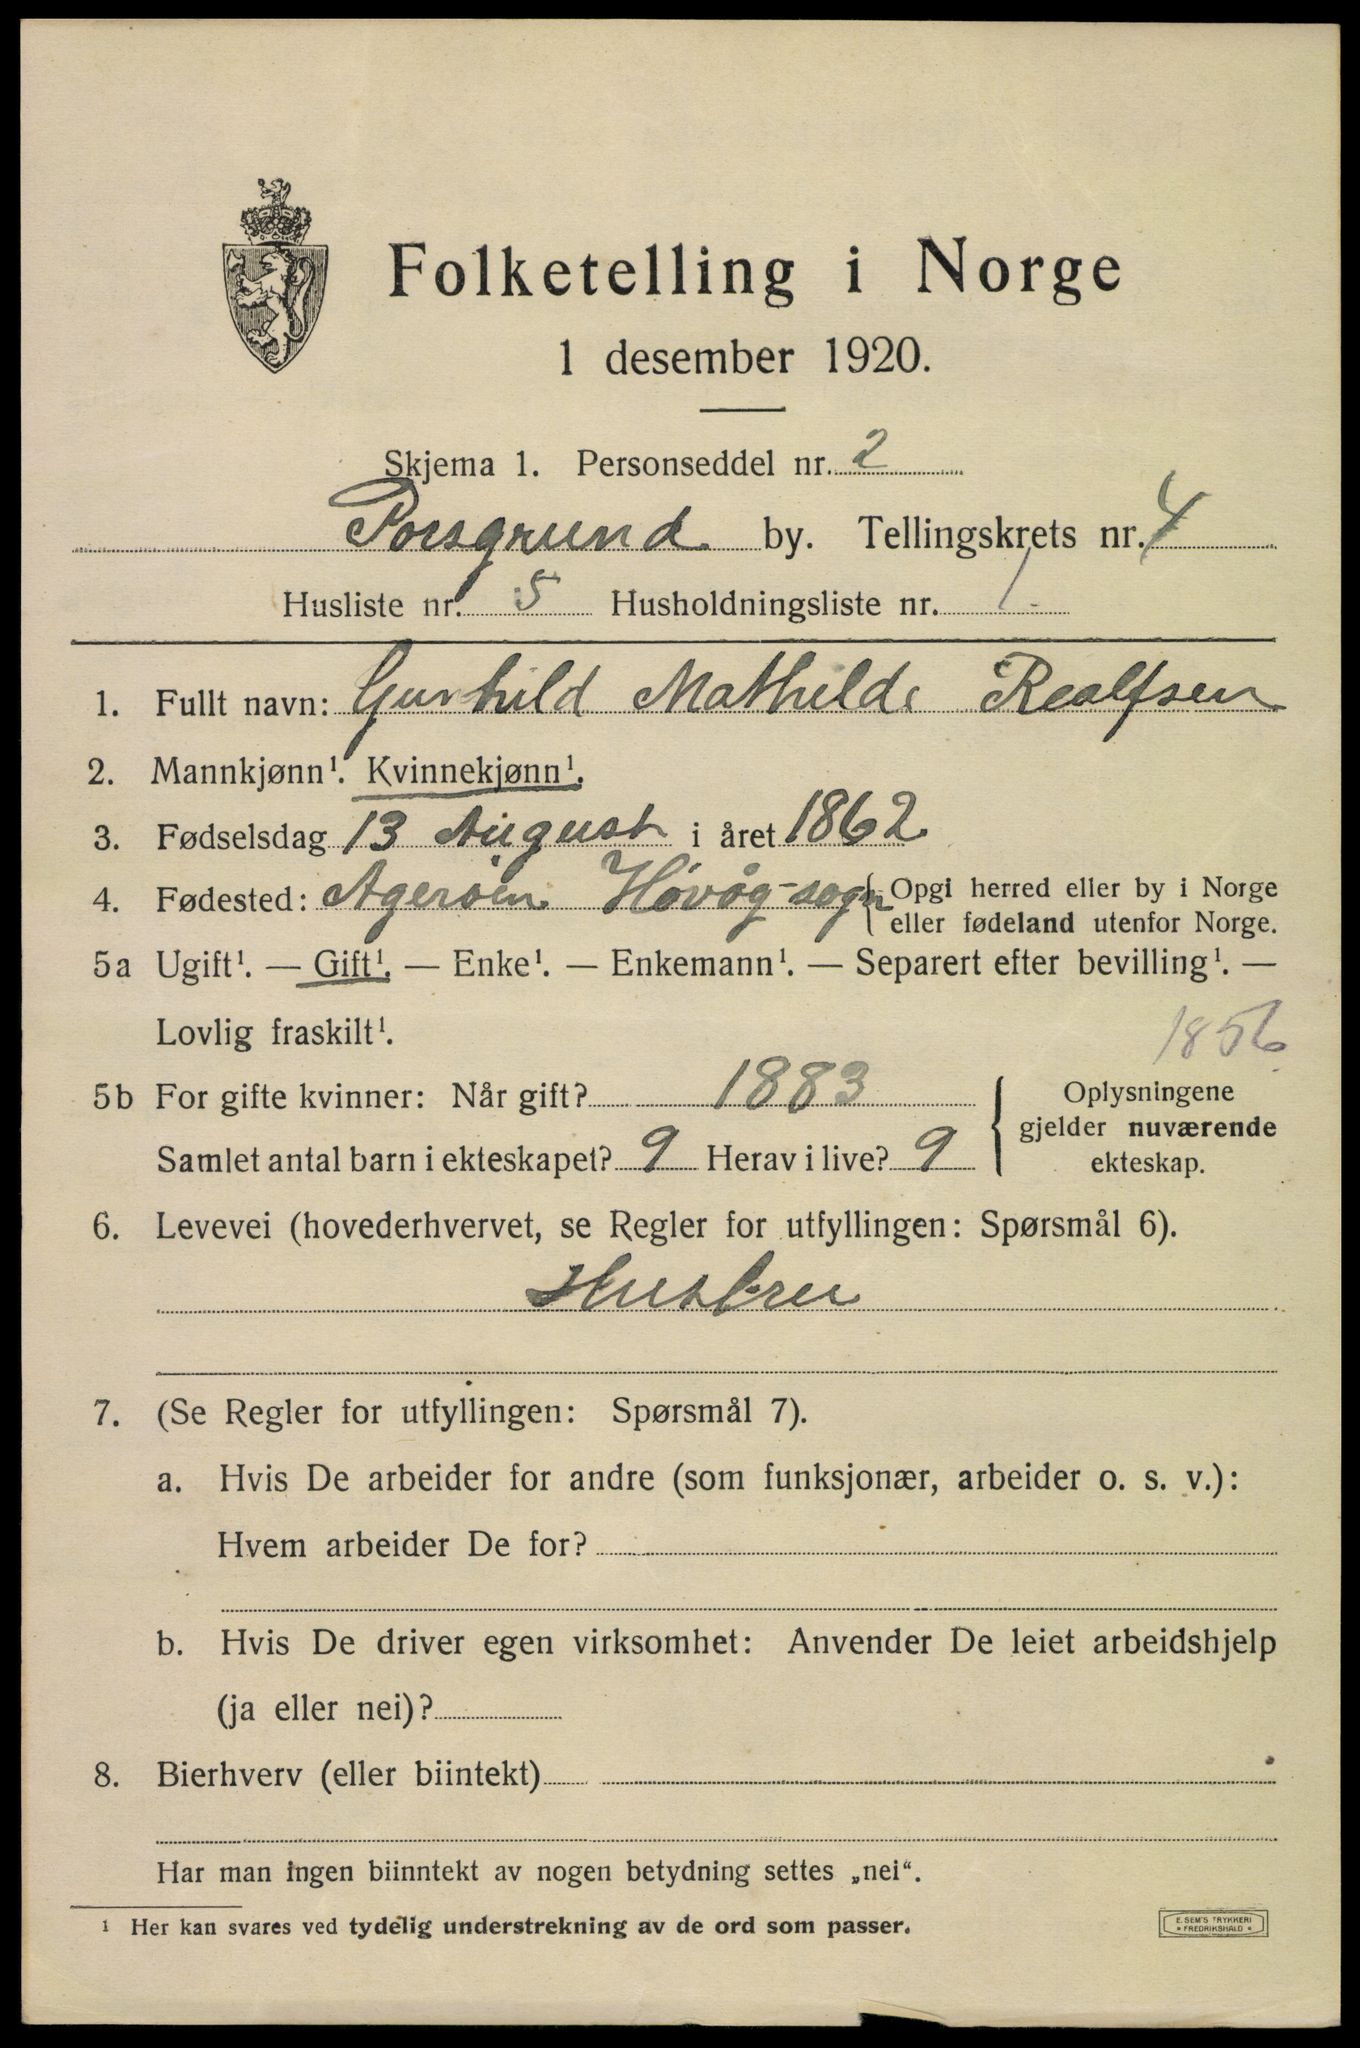 Folketelling i Norge
1 desember 1920.
Skjema 1. Personseddel nr. 2
Porsgrund by. Tellingskrets nr. 4
Husliste nr. 5 Husholdningsliste nr. 1.
1. Fullt navn: Gunhild Mathilde Realfsen
2. Mannkjønn¹. Kvinnekjønn¹.
3. Fødselsdag 13 August i året 1862
4. Fødested: Agerøen Høvåg-sogn { Opgi herred eller by i Norge
eller fødeland utenfor Norge.
5a Ugift¹. — Gift¹. — Enke¹. — Enkemann¹. — Separert efter bevilling¹. —
Lovlig fraskilt¹.
1856
5b For gifte kvinner: Når gift? 1883
Samlet antal barn i ekteskapet? 9 Herav i live? 9
{ Oplysningene
gjelder nuværende
ekteskap.
6. Levevei (hovederhvervet, se Regler for utfyllingen: Spørsmål 6).
Hustru
7. (Se Regler for utfyllingen: Spørsmål 7).
a. Hvis De arbeider for andre (som funksjonær, arbeider o. s. v.):
Hvem arbeider De for?
b. Hvis De driver egen virksomhet: Anvender De leiet arbeidshjelp
(ja eller nei)?
8. Bierhverv (eller biintekt)
Har man ingen biinntekt av nogen betydning settes „nei“.
¹ Her kan svares ved tydelig understrekning av de ord som passer.
E. SEM'S TRYKKERI
* FREDRIKSHALD *